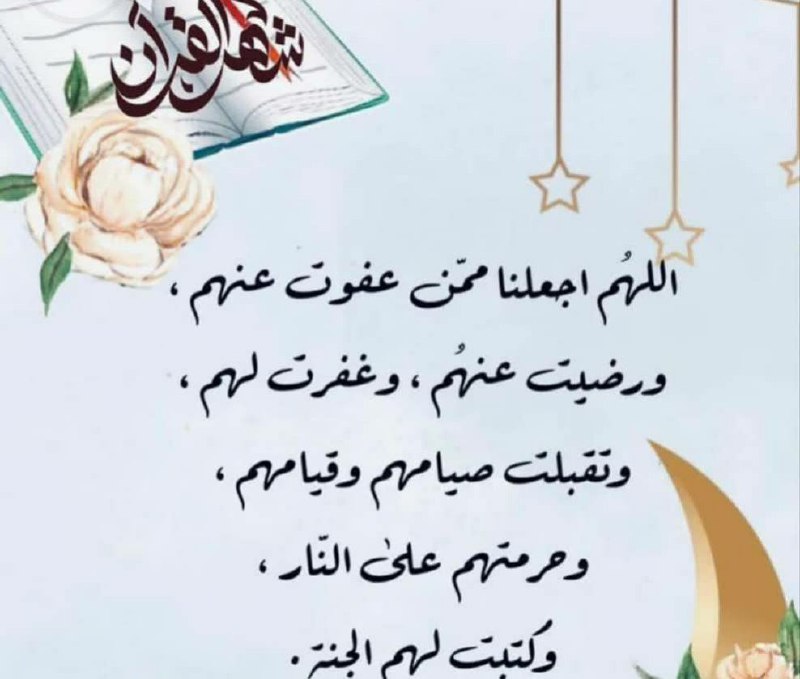 شهر القرآن
اللهُم اجعلنا ممّن عفوت عنهم ،
ورضيت عنهُم ، وغفرت لهم ،
وتقبلت صيامهم وقيامهم ،
وحرمتهم على النّار ،
وكُتبت لهم الجنة .